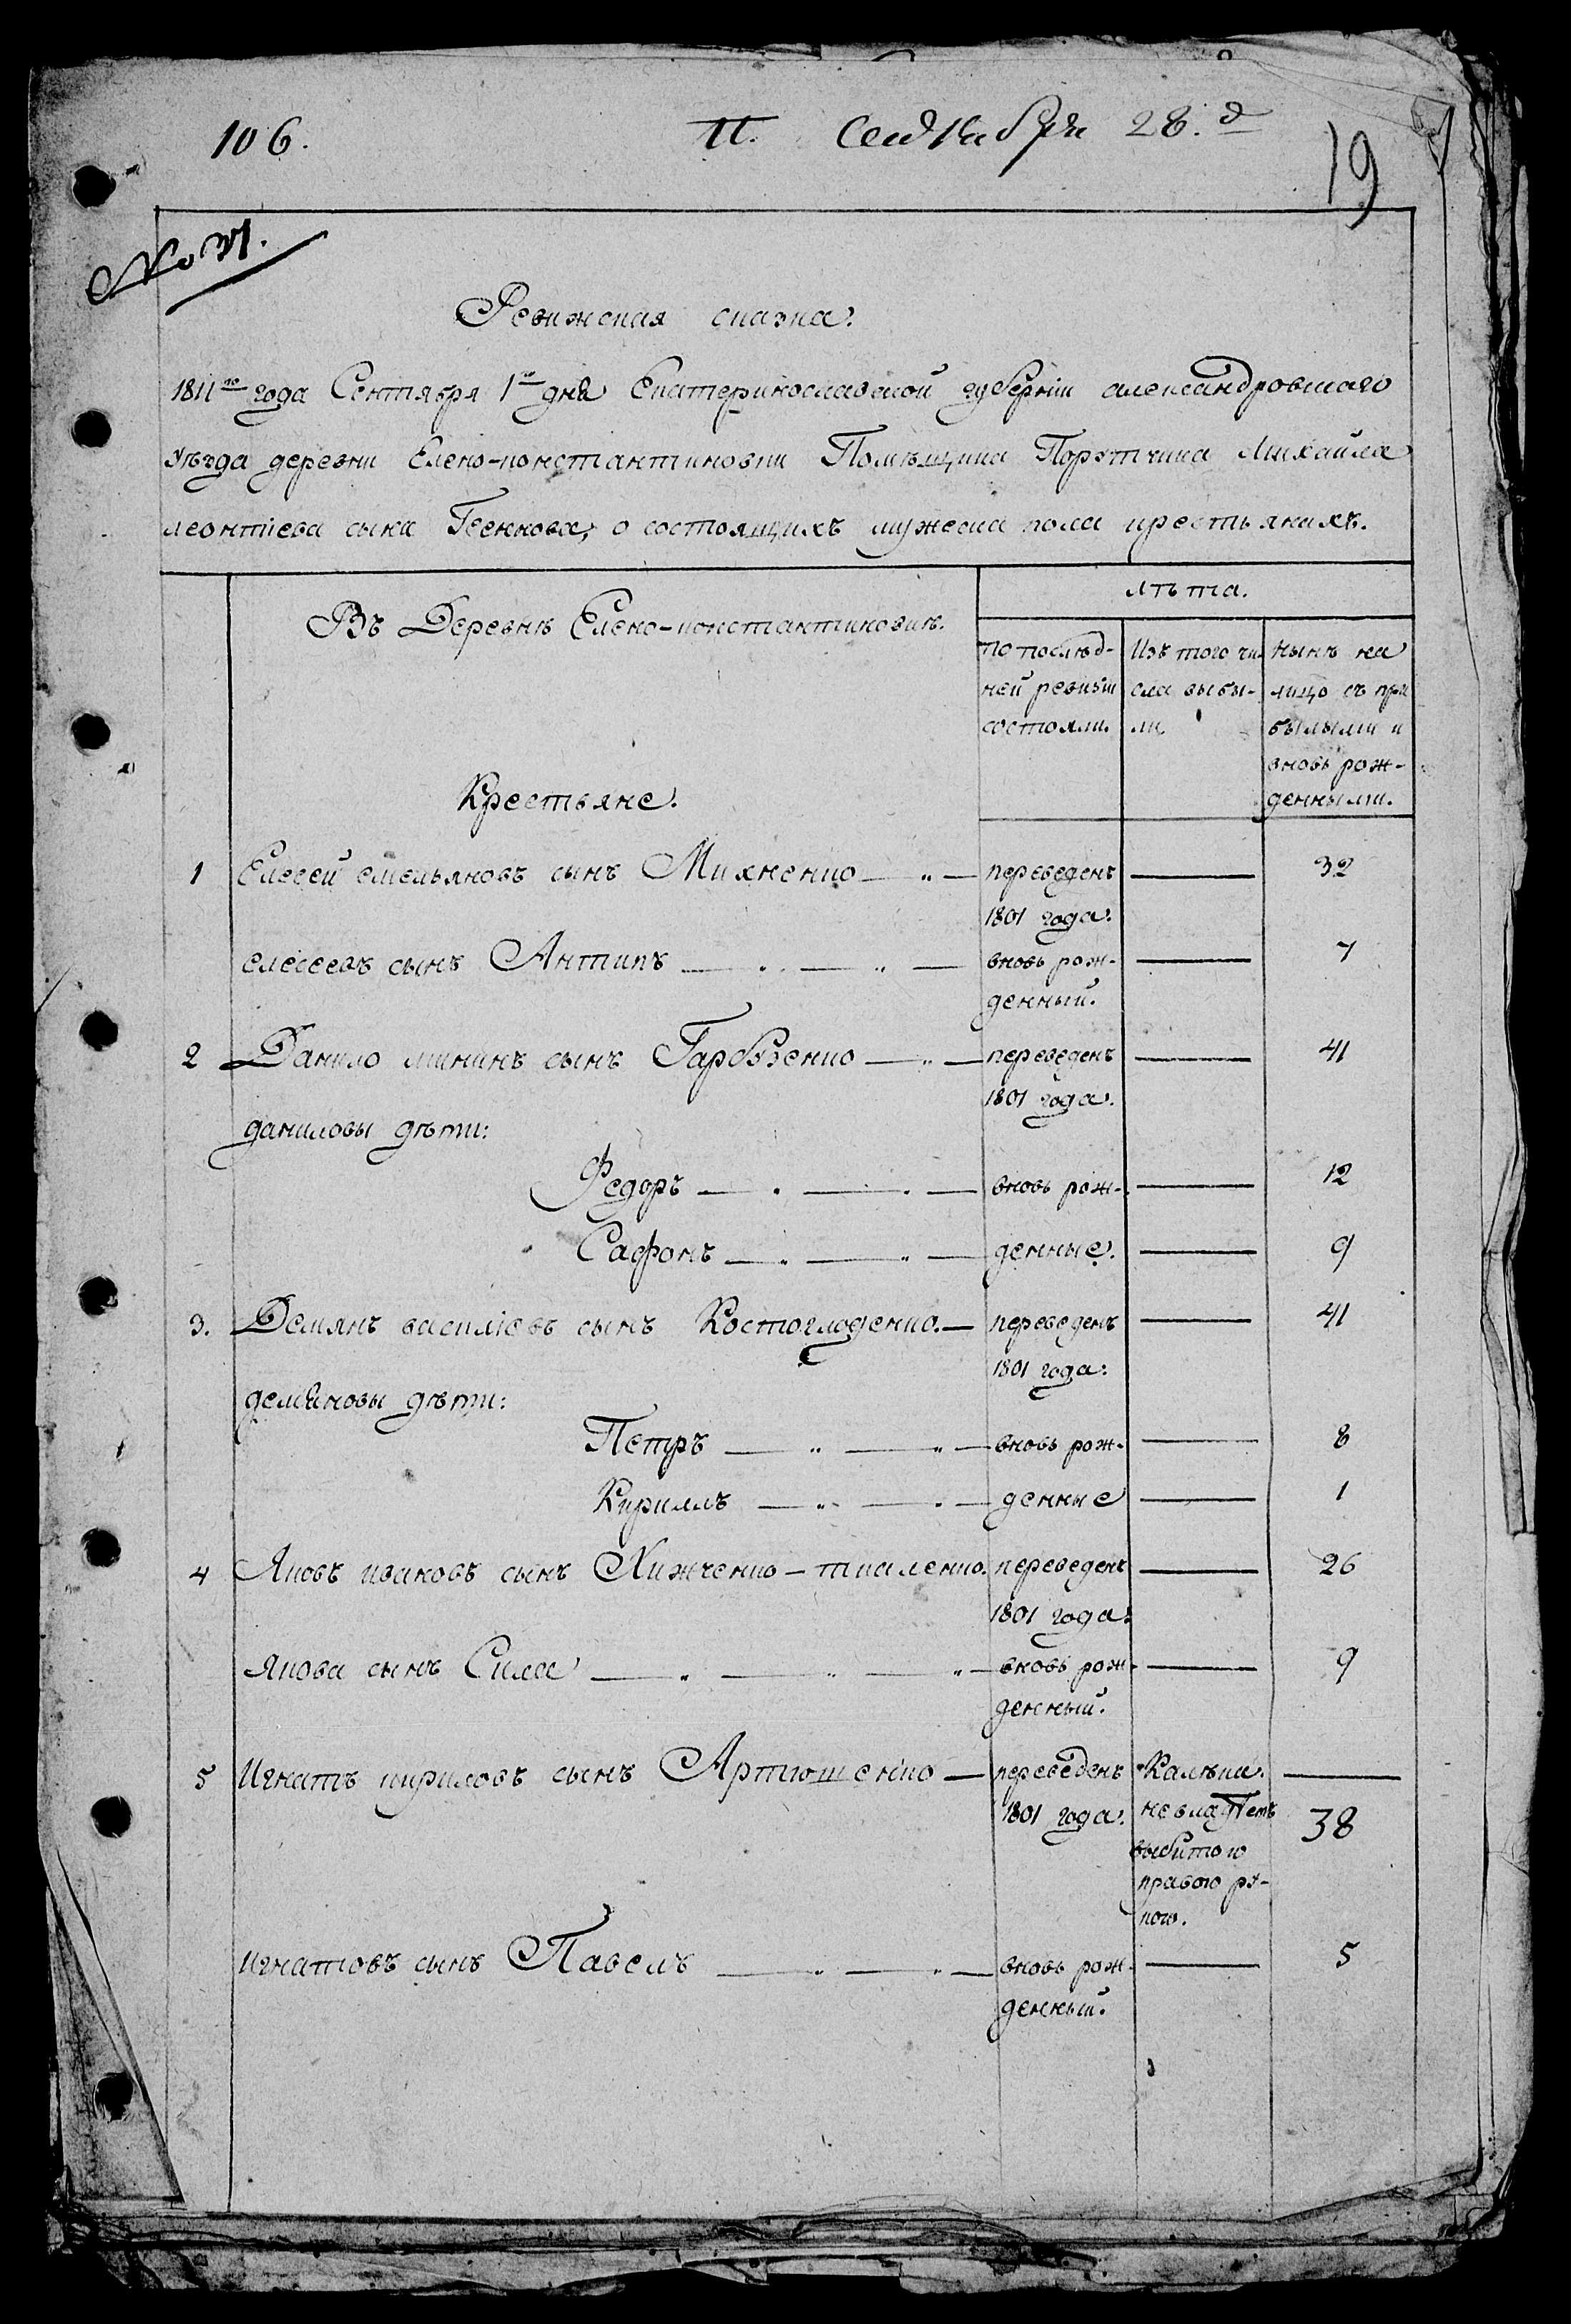 106.
П. Сентября 28.д
19
№ 31.
Ревижская сказка.
1811го года Сентября 1го дня Екатеринославской губерніи александровскаго
уѣзда деревни Елено-константиновки Помѣщика Порутчика Михайла
леонтіева сына Геенкова, о состоящихъ мужеска пола крестьянахъ.
Въ Деревнѣ Елено-константиновкѣ.
Крестьяне.
лѣта.
по послѣд-
ней ревизіи
состояли.
Изъ того чи-
сла выбы-
ли,
нынѣ на
лицо съ при
былыми и
вновь рож-
денными.
1 Елесей емельяновъ сынъ Михненко — „ — переведенъ — 32
1801 года.
елесеевъ сынъ Антипъ — „ — „ — вновь рож- — 7
денный.
2 Данило мининъ сынъ Гарбузенко — „ — переведенъ — 41
1801 года.
даниловы дѣти:
Федоръ — „ — „ — вновь рож- — 12
Сафонъ — „ — „ — денные. — 9
3. Демянъ василіевъ сынъ Костогладенко. — переведенъ — 41
1801 года.
демяновы дѣти:
Петръ — „ — „ — вновь рож- — 8
Кириллъ — „ — „ — денные — 1
4 Яковъ ивановъ сынъ Хижченко-ткаленко. переведенъ — 26
1801 года.
якова сынъ Сила — „ — „ — „ — вновь рож- — 9
денный.
5 Игнатъ кириловъ сынъ Артюшенко — переведенъ Калѣка. —
1801 года. невладѣетъ 38
выбитою
правою ру-
кою.
игнатовъ сынъ Павелъ — „ — „ — вновь рож- — 5
денный.